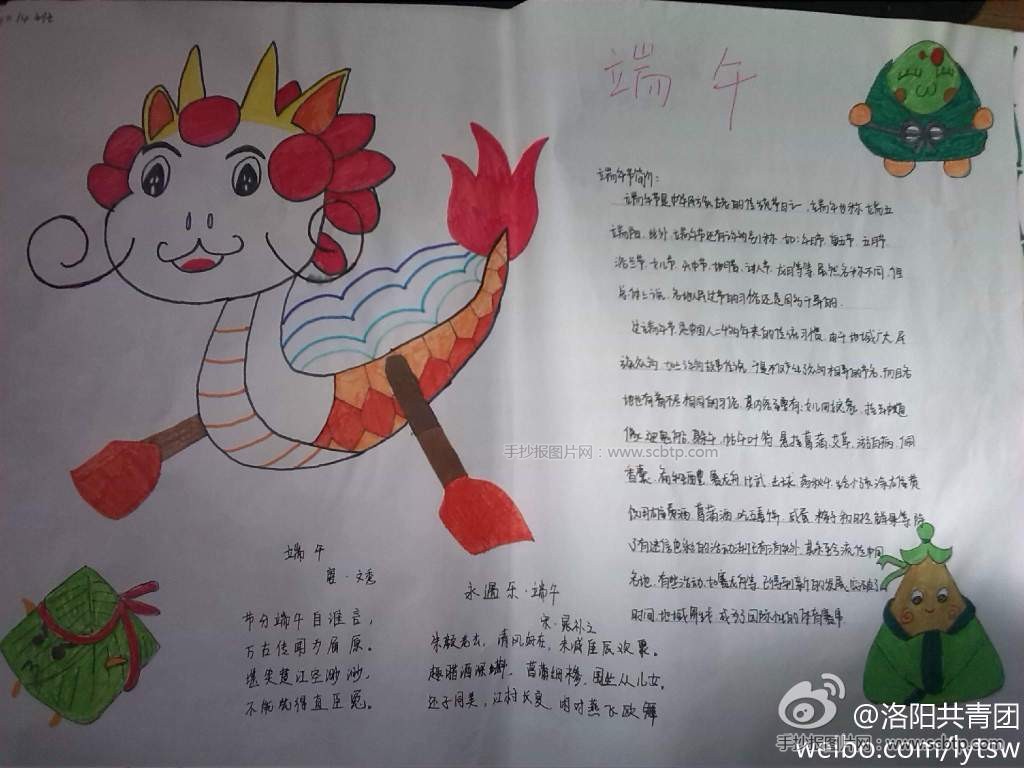 端午
端午节简介:
端午节是中华民族古老的传统节日之一,端午也称端五
端阳.此外,端午节还有许多别称.如:午日节、重五节、五月节
浴兰节、女儿节、天中节、地腊、诗人节、龙日等等.虽然名称不同,但
总体上说,各地人民过节的习俗还是同多于异的.
过端午节,是中国人二千多年来的传统习惯,由于地域广大,民
族众多,加上许多故事传说,于是不仅产生了众多相异的节名,而且各
地也有着不尽相同的习俗.其内容主要有:女儿回娘家,挂钟馗
像,迎鬼船、躲午,帖午叶符,悬挂菖蒲、艾草,游百病,佩
香囊,备牲醴,赛龙舟,比武,击球,荡秋千,给小孩涂雄黄
饮用雄黄酒、菖蒲酒,吃五毒饼、咸蛋、粽子和时令鲜果等,除
了有迷信色彩的活动渐已消失外,其余至今流传中国
各地.有些活动,如赛龙舟等,已得到新的发展,突破了
时间、地域界线,成为了国际性的体育赛事
手抄报图片网:www.scbtp.com
端午
唐·文秀
节分端午自谁言,
万古传闻为屈原。
堪笑楚江空渺渺,
不能洗得直臣冤。
永遇乐·端午
宋·晁补之
朱敲老去,清风好在,未减佳辰欢聚。
趣腊酒深斟,菖蒲细糁,围坐从儿女。
还子同美,江村长夏,时对燕飞鸥舞
@洛阳共青团
手抄报图片网:www.scbtp.com
weibo.com/lytsw